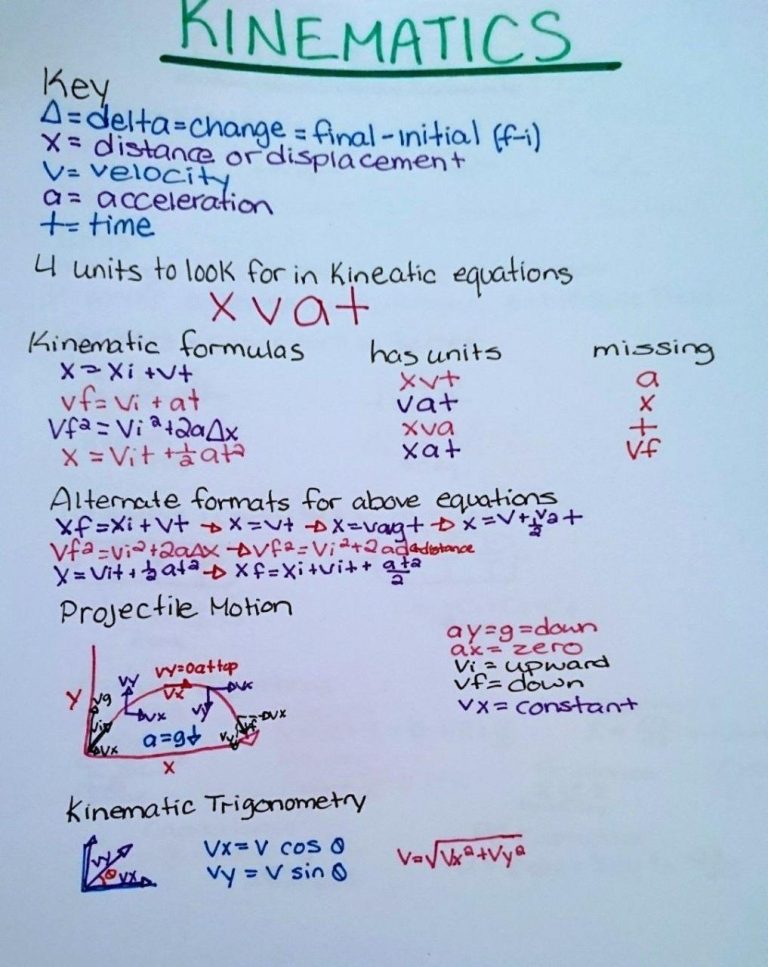 KINEMATICS
Key
Δ = delta = change = final - initial (f-i)
x = distance or displacement
v = velocity
a = acceleration
t = time
4 units to look for in Kineatic equations
x v a t
Kinematic formulas has units missing
x = xi + vt xvt a
vf = vi + at vat x
vf² = vi² + 2aΔx xva t
x = vit + ½ at² xat vf
Alternate formats for above equations
xf = xi + vt → x = vt → x = vavgt → x = v + v₂/2 t
vf² = vi² + 2aΔx → vf² = vi² + 2ad d=distance
x = vit + ½ at² → xf = xi + vit + at²/2
Projectile Motion
ay = g = down
ax = zero
vi = upward
vf = down
vx = constant
vy = 0 at top
vx
vy
vx
vx
vy
y
vx
a = g↓
vx
vy
x
Kinematic Trigonometry
vy
θ vx
vx = v cos θ
vy = v sin θ
v = √vx² + vy²